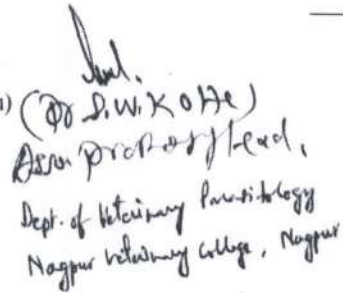 1) (Dr S.W. Kolte)
Asso. Prof & Head,
Dept. of Veterinary Parasitology
Nagpur Veterinary College, Nagpur